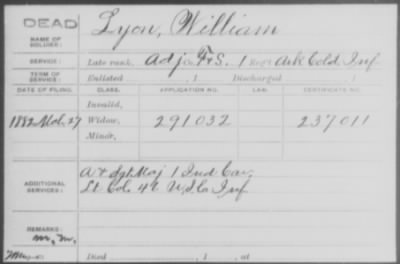 DEAD
Lyon, William
NAME OF SOLDIER:
SERVICE: Late rank, Adj. F&S. 1 Reg't Ark Cold Inf
TERM OF SERVICE: Enlisted , 1 Discharged , 1
DATE OF FILING. CLASS. APPLICATION NO. LAW. CERTIFICATE NO.
Invalid,
1882 27 Widow, 291032 237011
Minor,
ADDITIONAL SERVICES:
A & Sgt Maj 1 Ind Cav,
Lt Col 4" U.S. Co Inf
REMARKS:
Died , 1 , at